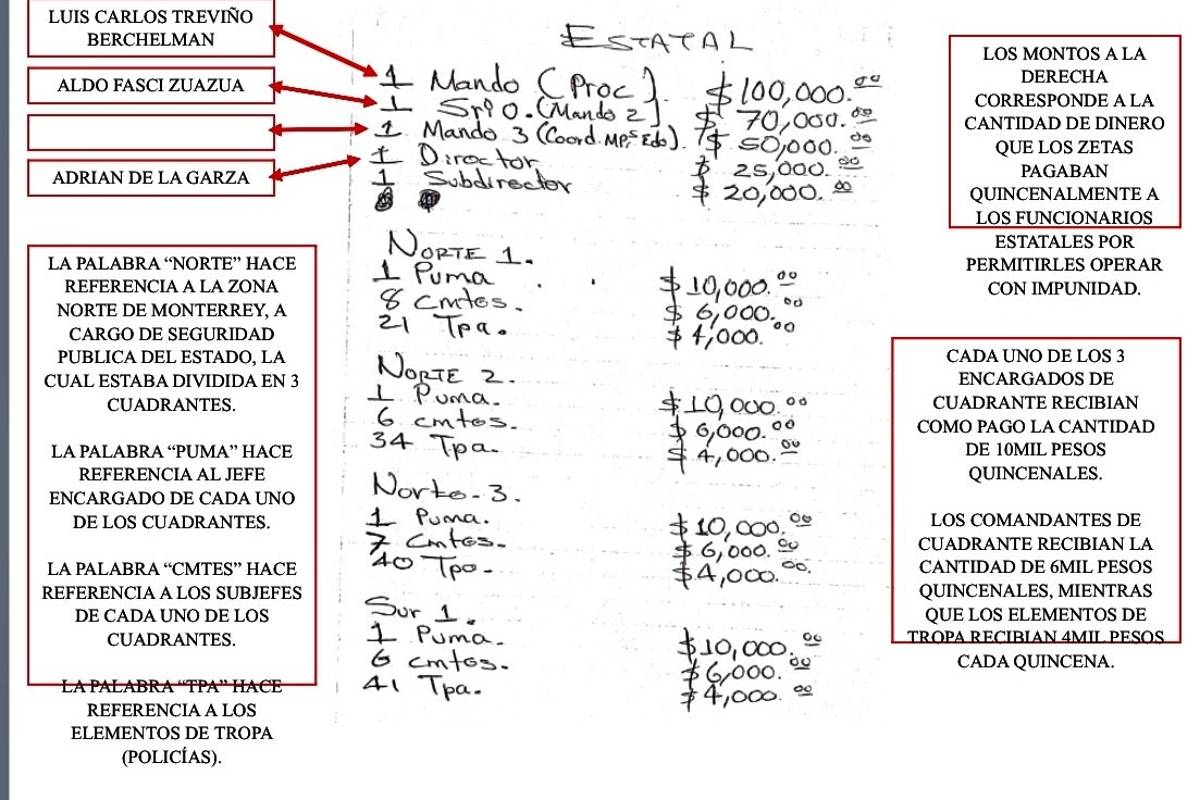 LUIS CARLOS TREVIÑO
BERCHELMAN
ALDO FASCI ZUAZUA
ADRIAN DE LA GARZA
LA PALABRA “NORTE” HACE
REFERENCIA A LA ZONA
NORTE DE MONTERREY, A
CARGO DE SEGURIDAD
PUBLICA DEL ESTADO, LA
CUAL ESTABA DIVIDIDA EN 3
CUADRANTES.
LA PALABRA “PUMA” HACE
REFERENCIA AL JEFE
ENCARGADO DE CADA UNO
DE LOS CUADRANTES.
LA PALABRA “CMTES” HACE
REFERENCIA A LOS SUBJEFES
DE CADA UNO DE LOS
CUADRANTES.
LA PALABRA “TPA” HACE
REFERENCIA A LOS
ELEMENTOS DE TROPA
(POLICÍAS).
ESTATAL
1 Mando (Proc). $100,000.00
1 (Mando 2) $ 70,000.00
1 Mando 3 (Coord. MPs Edo). $ 50,000.00
1 Director $ 25,000.00
1 Subdirector $ 20,000.00
NORTE 1.
1 Puma $10,000.00
8 Cmtes. $ 6,000.00
21 Tpa. $ 4,000.00
NORTE 2.
1 Puma. $10,000.00
6 cmtos. $ 6,000.00
34 Tpa. $ 4,000.00
Norte-3.
1 Puma. $10,000.00
7 Cmtes. $ 6,000.00
40 Tpa. $4,000.00
Sur 1.
1 Puma. $10,000.00
6 cmtos. $6,000.00
41 Tpa. $4,000.00
LOS MONTOS A LA
DERECHA
CORRESPONDE A LA
CANTIDAD DE DINERO
QUE LOS ZETAS
PAGABAN
QUINCENALMENTE A
LOS FUNCIONARIOS
ESTATALES POR
PERMITIRLES OPERAR
CON IMPUNIDAD.
CADA UNO DE LOS 3
ENCARGADOS DE
CUADRANTE RECIBIAN
COMO PAGO LA CANTIDAD
DE 10MIL PESOS
QUINCENALES.
LOS COMANDANTES DE
CUADRANTE RECIBIAN LA
CANTIDAD DE 6MIL PESOS
QUINCENALES, MIENTRAS
QUE LOS ELEMENTOS DE
TROPA RECIBIAN 4MIL PESOS
CADA QUINCENA.